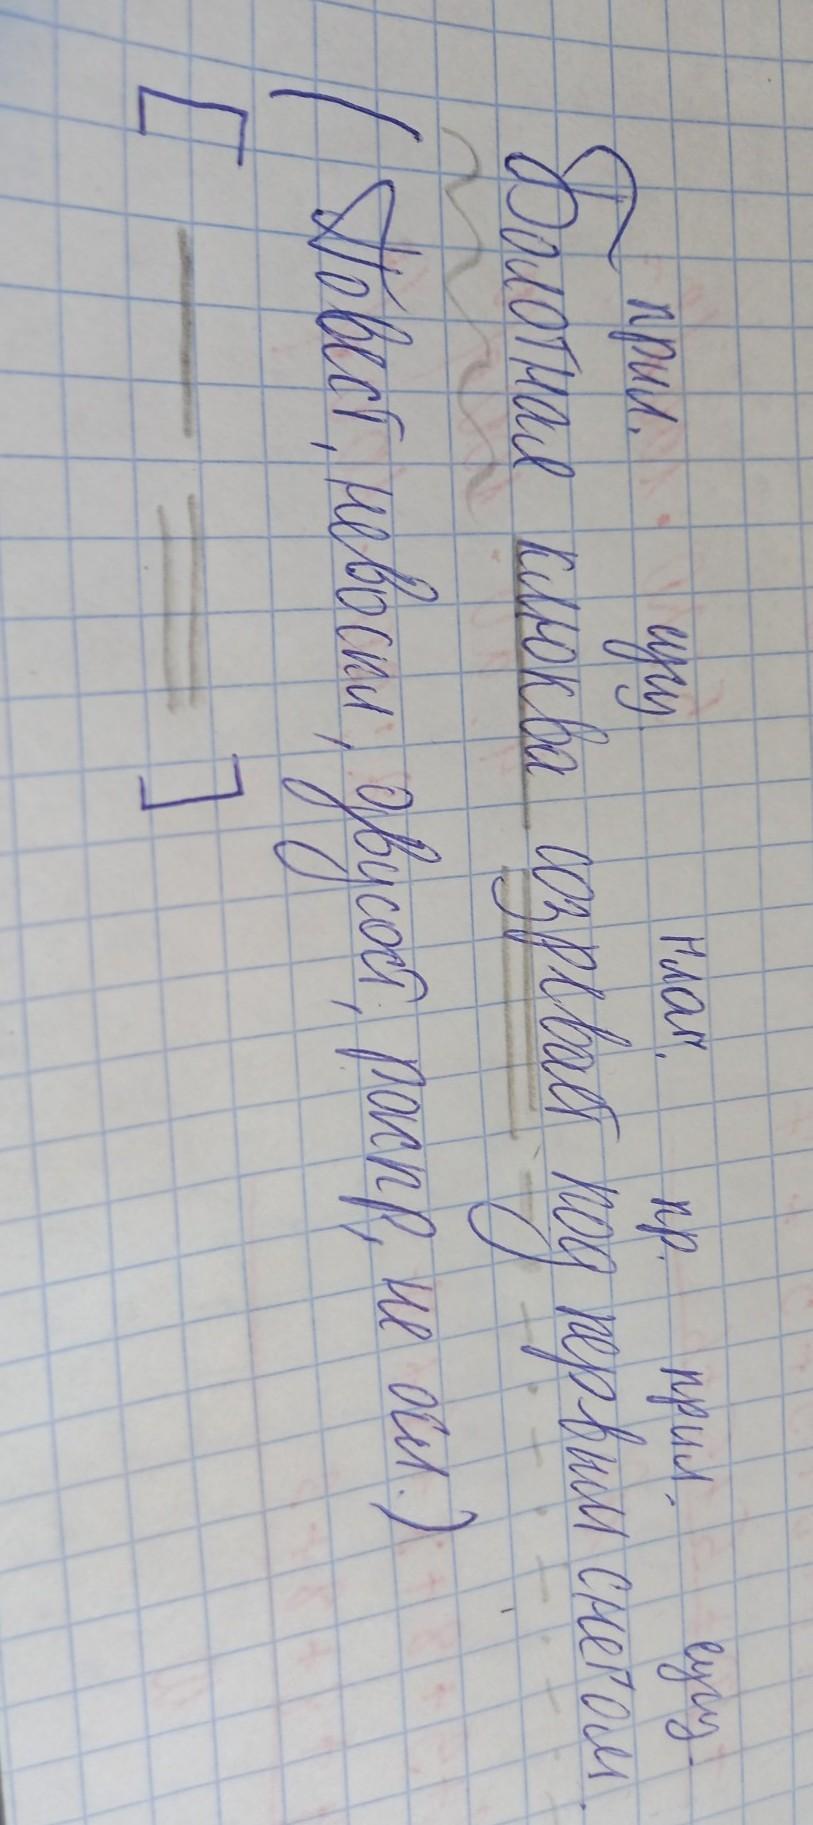 прил. сущ. глаг. пр. прил. сущ.
Болотная клюква созревает под первым снегом.
(Повест, невоскл, двусост, распр, не осл.)
[ ]